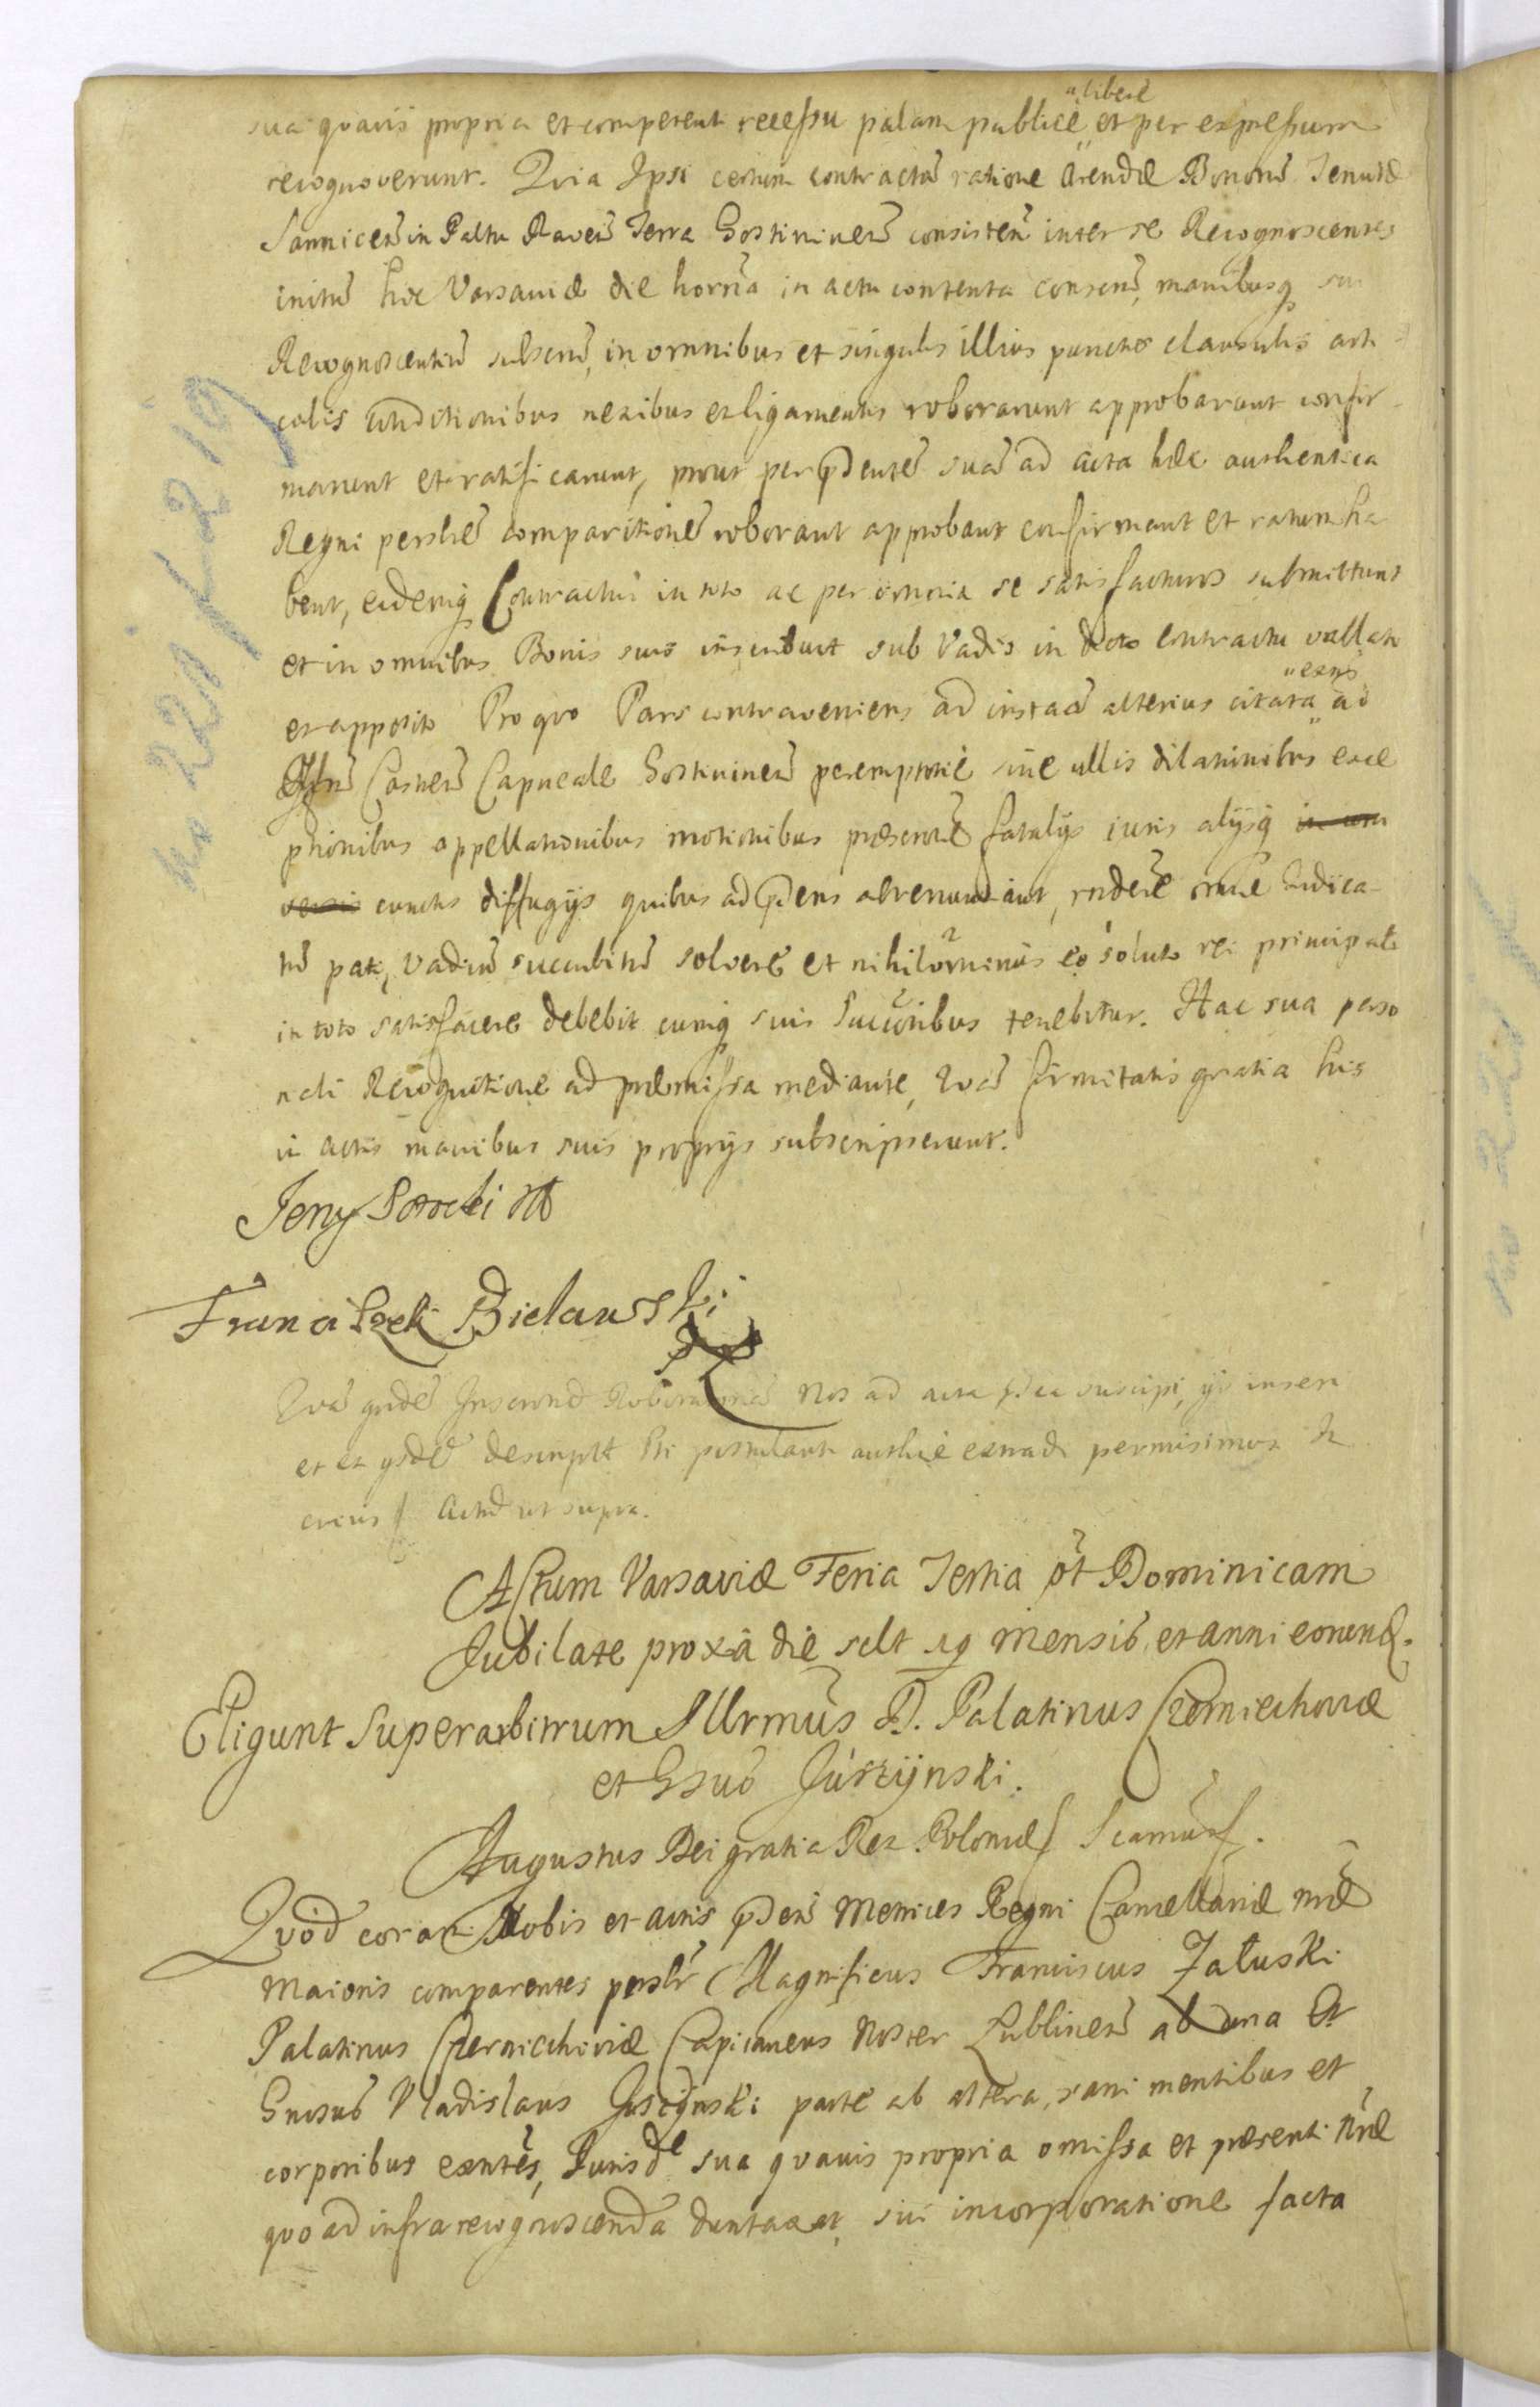 libere
sua quavis propria et competent recessu palam publice et per expressum
recognoverunt. Qvia Ipsi certum contractū ratione Arendæ Bonorū Tenutæ
Sannicen̄ in Paltu Raven̄ Terra Gostininen̄ consisten̄ inter se Recognoscentes
initū hic Varsaviæ die horna in actu contenta conscrip, manibusq
Recognoscentiū subscriū, in omnibus et singulis illius punctis clausulis arti
culis conditionibus nexibus et ligamentis roborarunt approbarunt confir
marunt et ratificarunt, prout per pn̄dentē suā ad acta hæc authentica
Regni persl̄nē comparitionē roborant approbant confirmant et ratum ha
bent, eidemq Contractui in toto ac per omnia se satisfacturos submittunt
et in omnibus Bonis suis inscribunt sub Vadio in dcto contractu vallato
exn̄s
et apposito Pro quo Pars contraveniens ad instaā alterius citata ad
Offū Castren̄ Capneale Gostininen̄ peremptorie sine ullis dilationibus exce
ptionibus appellationibus motionibus præscrone fatalijs iuris alijsq
cunctis diffugijs quibus ad pn̄dens abrenuntiant, rndere onīe Iudica
tū pati, Vadiū succubitū solvere et nihilominus eo soluto rei principali
in toto satisfacere debebit eumq suis Succoribus tenebitur. Hac sua perso
nali Recognitione ad præmissa mediante, Qvā firmitatis gratia his
in actis manibus suis proprijs subscripserunt.
Franciszek Bielawski
Qvā qndē Inscronē Roborāonē Nos ad acta pn̄tia suscipi, ijs inseri
et ex ysdē descriptt Pti postulanti authce extradi permisimus
Actū ut supra.
Actum Varsaviæ Feria Tertia pt̄ Dominicam
Jubilate proxā die sclt 19 mensis et anni eorund.
Eligunt Superarbitrum Illrmūs D. Palatinus Czerniechoviæ
et Gsus Juszÿnski.
Augustus Dei gratia Rex Poloniæ
Qvod coram Nobis et actis pn̄den̄ Metrices Regni Cancellariæ nræ
Maioris comparentes persl̄r Magnificus Franciscus Załuski
Palatinus Czerniechoviæ Capitaneus Noster Lublinen̄ ab una Et
Gnrsus Vladislaus Juszÿnski parte ab altera, sani mentibus et
corporibus exntes, Jurisde sua quavis propria omissa et præsenti nræ
quo ad infra recognoscenda duntaxat, sui incorporatione facta